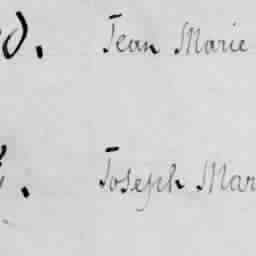 Jean Marie
Joseph Mar